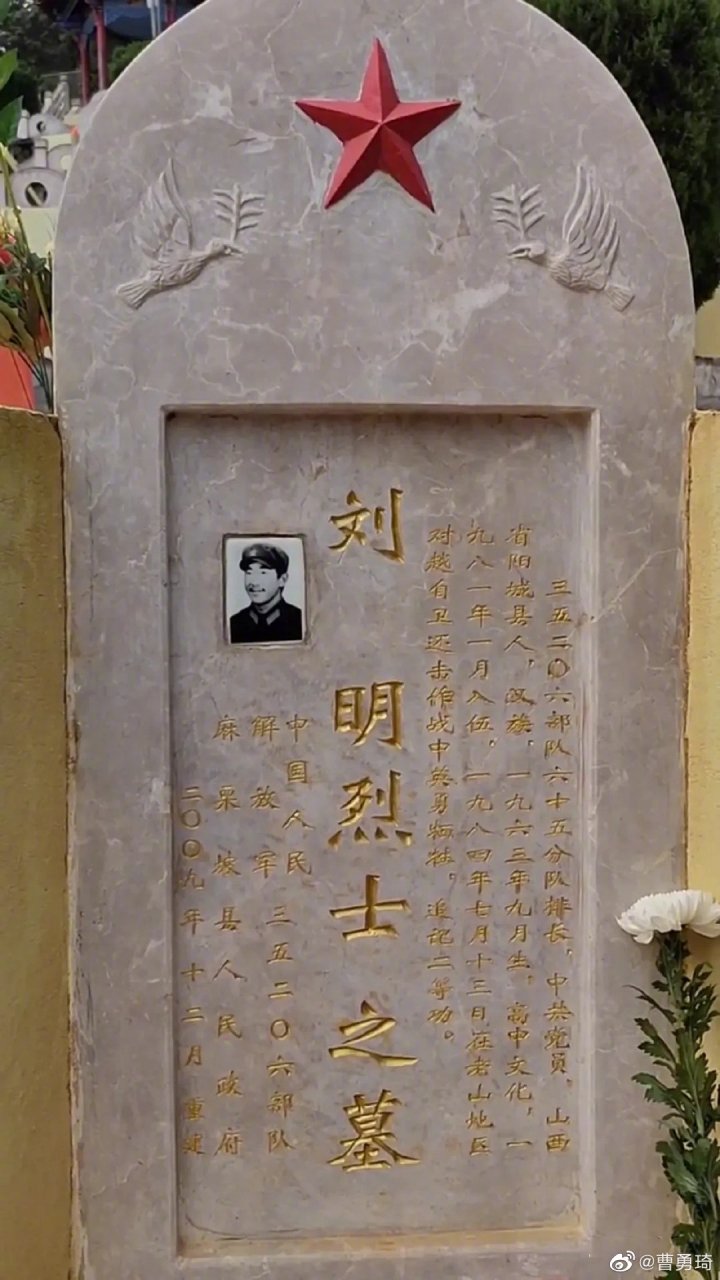 三五二〇六部队六十五分队排长，中共党员，山西
省阳城县人，汉族，一九六三年九月生，高中文化，一
九八一年一月入伍。一九八四年七月十三日在老山地区
对越自卫还击作战中英勇牺牲。追记二等功。
刘明烈士之墓
中国人民
解放军三五二〇六部队
麻栗坡县人民政府
二〇〇九年十二月重建
@曹勇琦